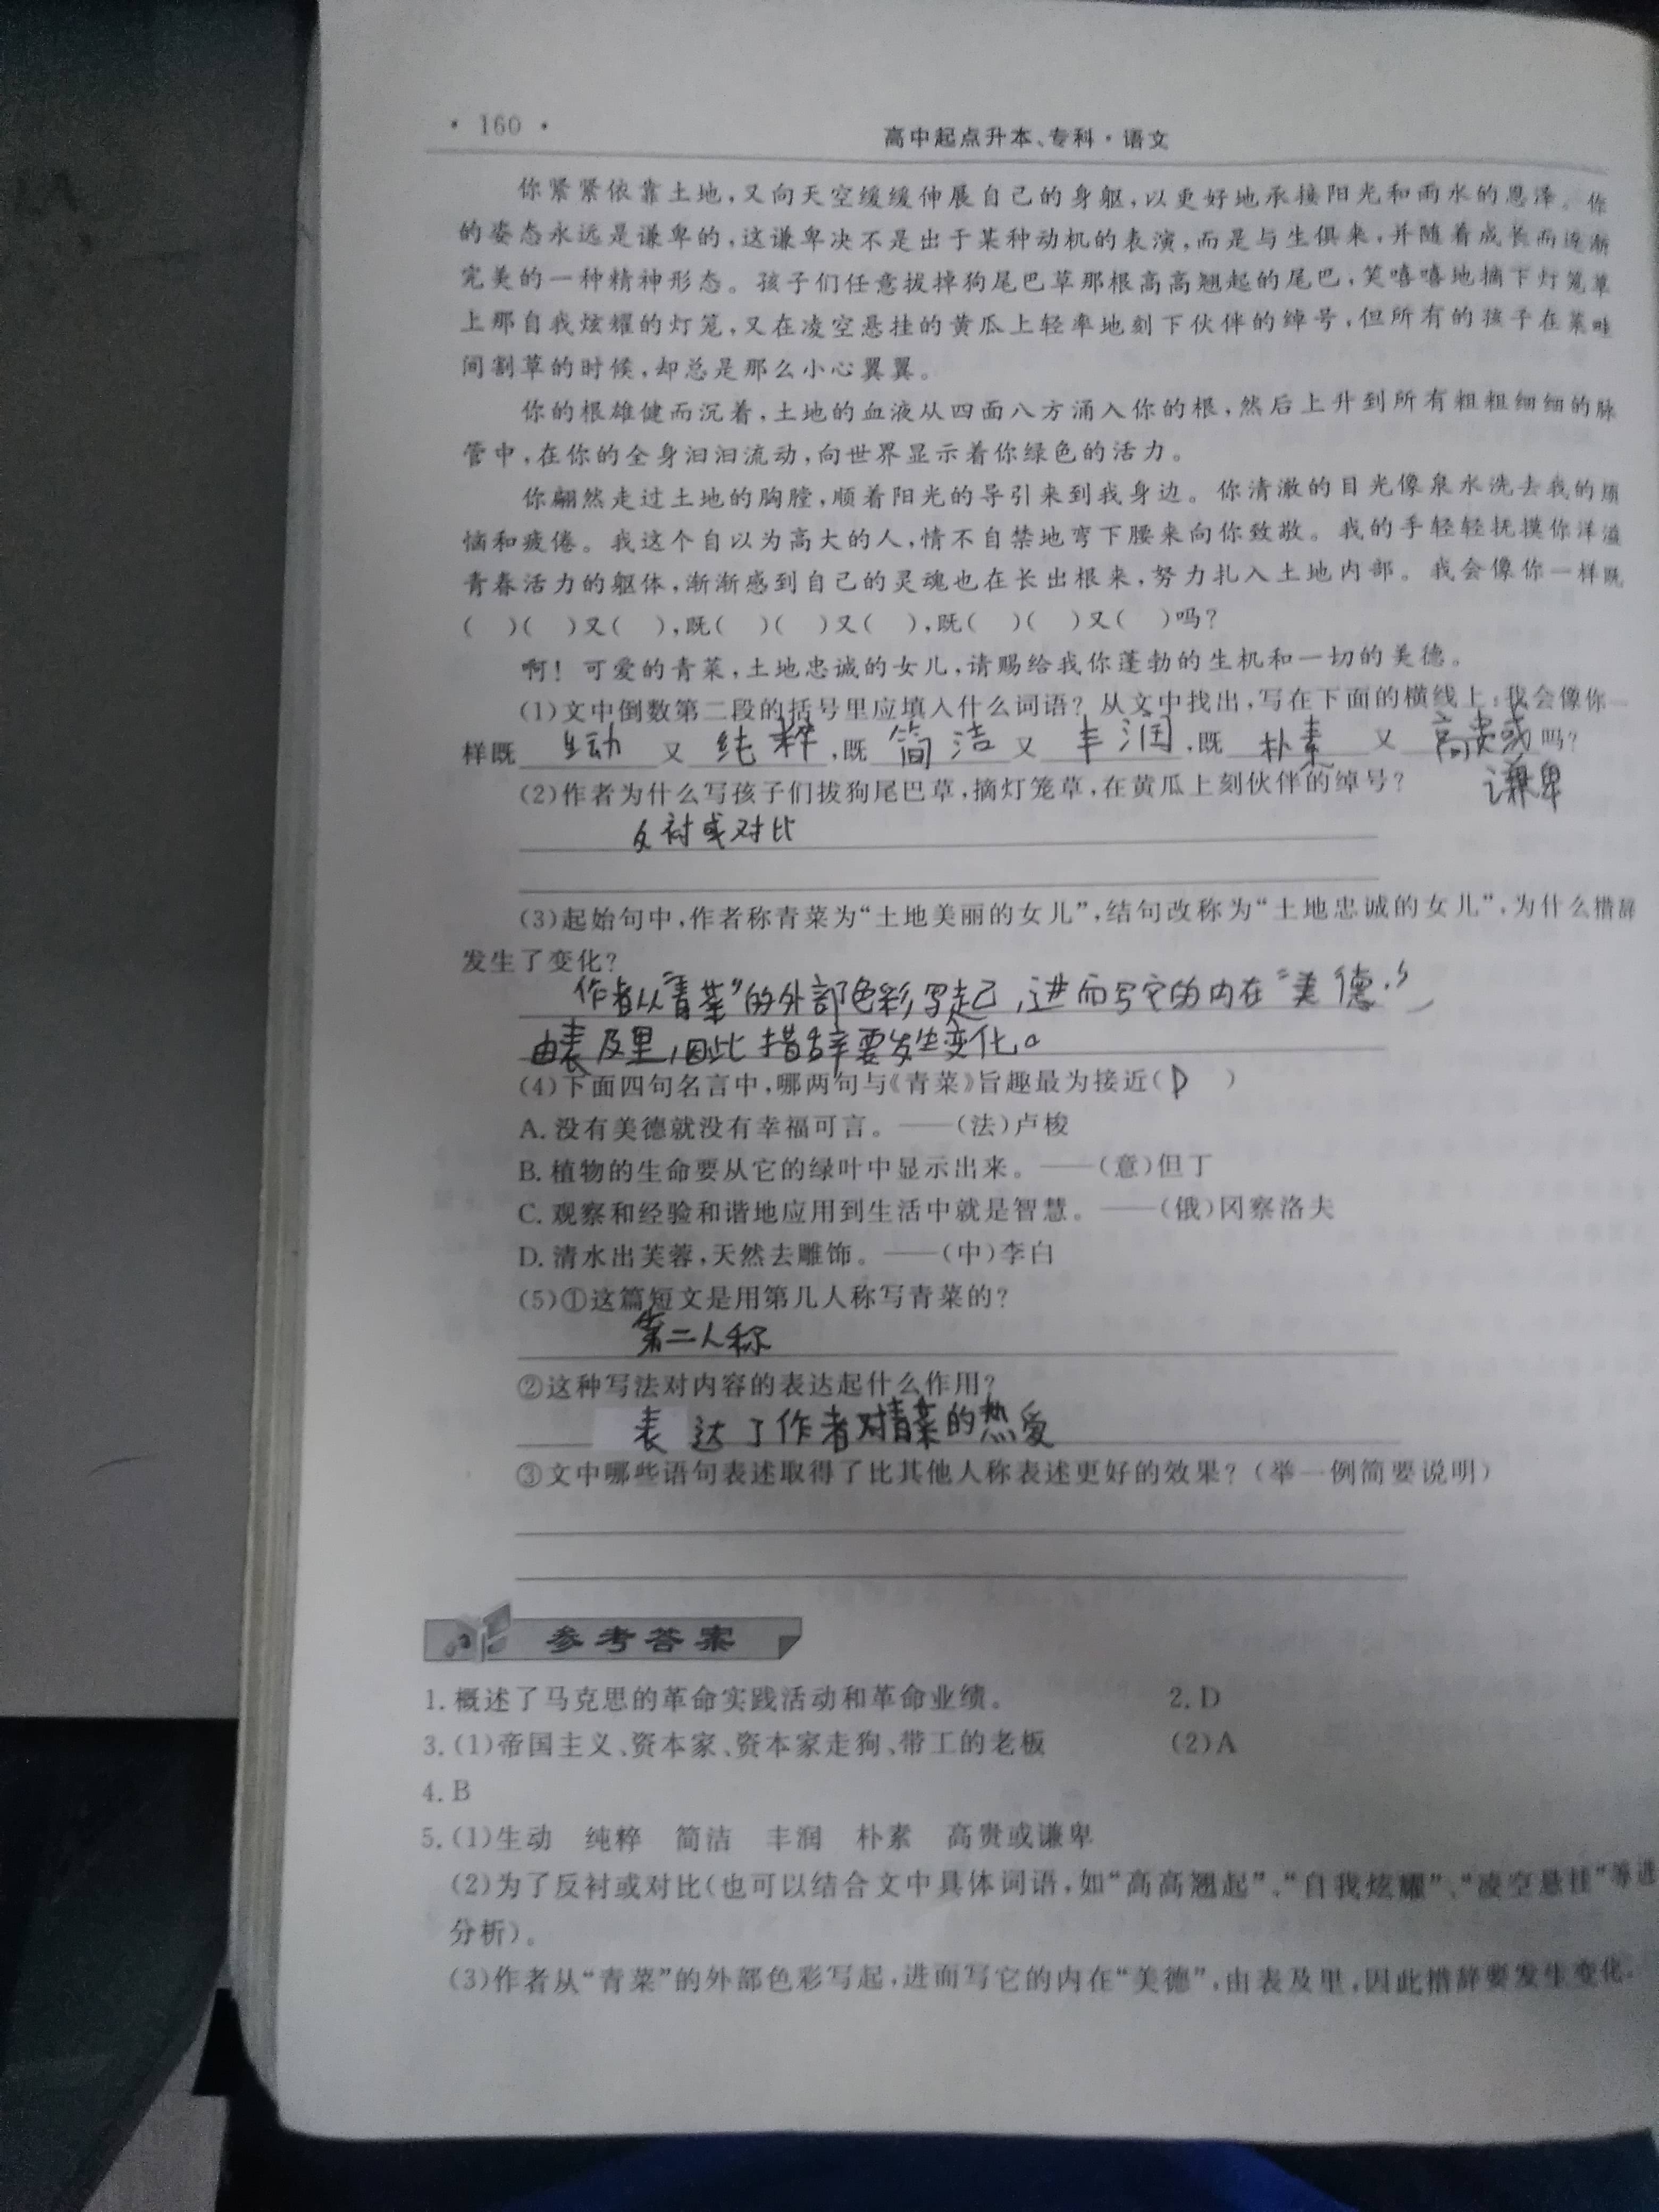 · 160 ·
高中起点升本、专科·语文
你紧紧依靠土地,又向天空缓缓伸展自己的身躯,以更好地承接阳光和雨水的恩泽。你
的姿态永远是谦卑的,这谦卑决不是出于某种动机的表演,而是与生俱来,并随着成长而逐渐
完美的一种精神形态。孩子们任意拔掉狗尾巴草那根高高翘起的尾巴,笑嘻嘻地摘下灯笼草
上那自我炫耀的灯笼,又在凌空悬挂的黄瓜上轻率地刻下伙伴的绰号,但所有的孩子在菜畦
间割草的时候,却总是那么小心翼翼。
你的根雄健而沉着,土地的血液从四面八方涌入你的根,然后上升到所有粗粗细细的脉
管中,在你的全身汩汩流动,向世界显示着你绿色的活力。
你翩然走过土地的胸膛,顺着阳光的导引来到我身边。你清澈的目光像泉水洗去我的烦
恼和疲倦。我这个自以为高大的人,情不自禁地弯下腰来向你致敬。我的手轻轻抚摸你洋溢
青春活力的躯体,渐渐感到自己的灵魂也在长出根来,努力扎入土地内部。我会像你一样既
( )( )又( ),既( )( )又( ),既( )( )又( )吗?
啊!可爱的青菜,土地忠诚的女儿,请赐给我你蓬勃的生机和一切的美德。
(1)文中倒数第二段的括号里应填入什么词语?从文中找出,写在下面的横线上:我会像你一
样既 生动 又 纯粹,既 简洁 又 丰润,既 朴素 又 高贵或 吗?
谦卑
(2)作者为什么写孩子们拔狗尾巴草,摘灯笼草,在黄瓜上刻伙伴的绰号?
反衬或对比
(3)起始句中,作者称青菜为“土地美丽的女儿”,结句改称为“土地忠诚的女儿”,为什么措辞
发生了变化?
作者从“青菜”的外部色彩写起,进而写它的内在“美德”,
由表及里,因此措辞要发生变化。
(4)下面四句名言中,哪两句与《青菜》旨趣最为接近( D )
A. 没有美德就没有幸福可言。——(法)卢梭
B. 植物的生命要从它的绿叶中显示出来。——(意)但丁
C. 观察和经验和谐地应用到生活中就是智慧。——(俄)冈察洛夫
D. 清水出芙蓉,天然去雕饰。——(中)李白
(5)①这篇短文是用第几人称写青菜的?
第二人称
②这种写法对内容的表达起什么作用?
表达了作者对青菜的热爱
③文中哪些语句表述取得了比其他人称表述更好的效果?(举一例简要说明)
参考答案
1. 概述了马克思的革命实践活动和革命业绩。 2. D
3. (1)帝国主义、资本家、资本家走狗、带工的老板 (2)A
4. B
5. (1)生动 纯粹 简洁 丰润 朴素 高贵或谦卑
(2)为了反衬或对比(也可以结合文中具体词语,如“高高翘起”、“自我炫耀”、“凌空悬挂”等进
分析)。
(3)作者从“青菜”的外部色彩写起,进而写它的内在“美德”,由表及里,因此措辞要发生变化。